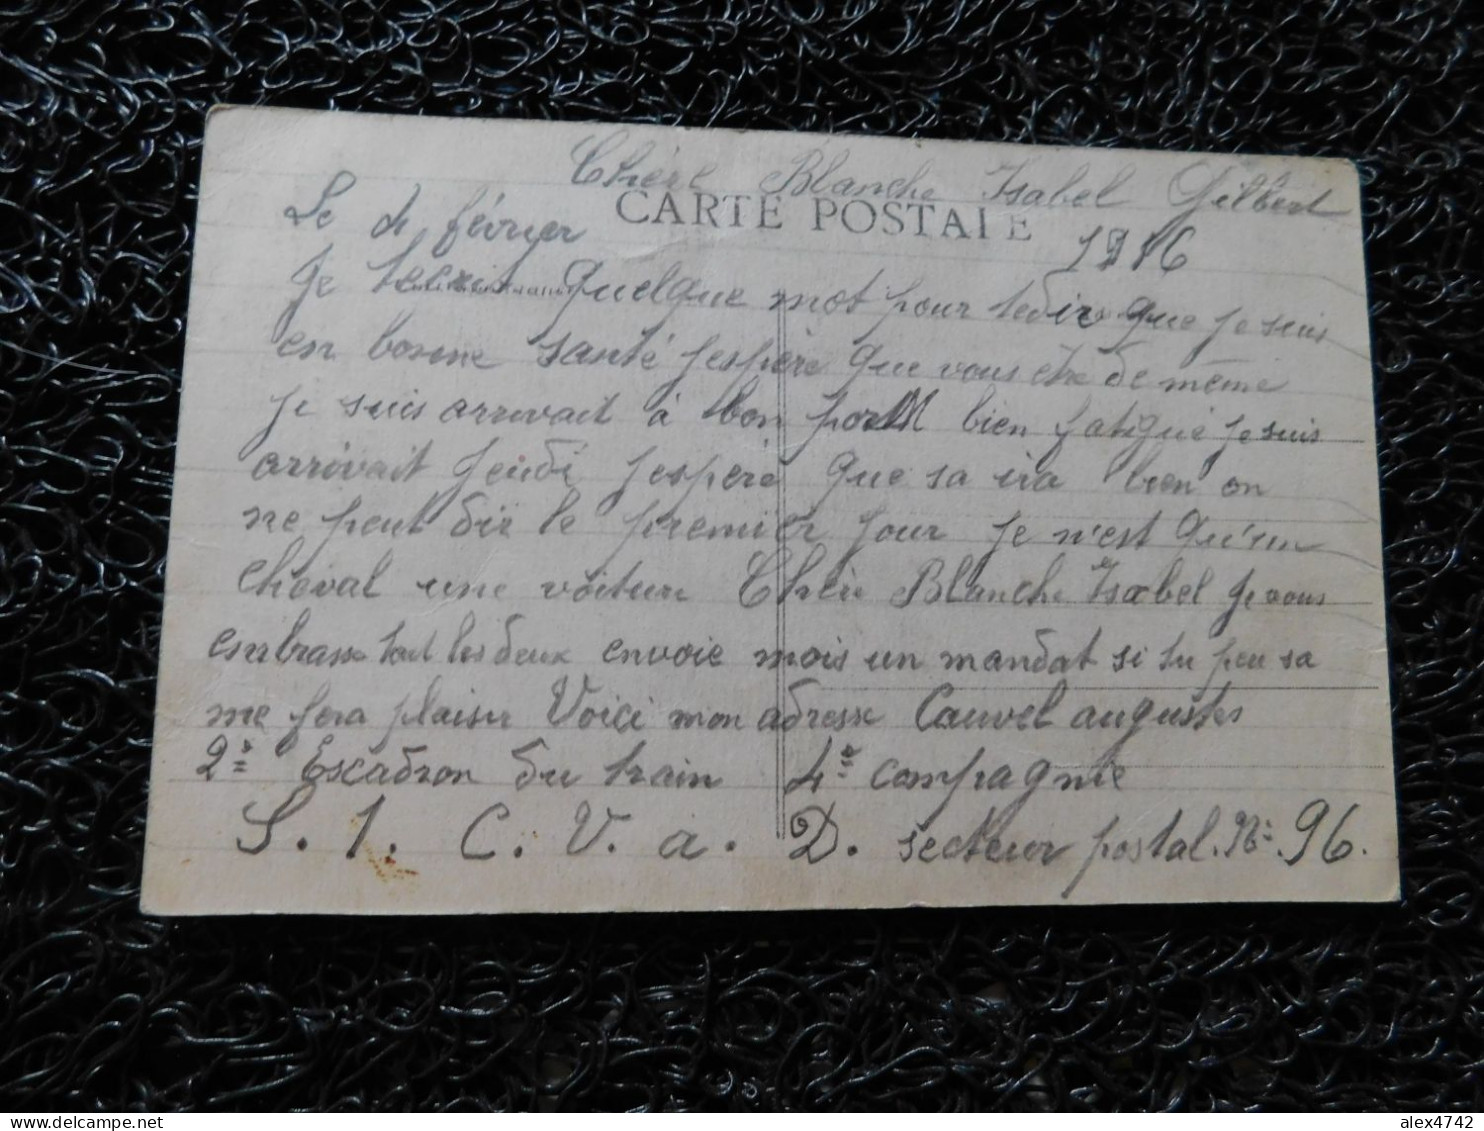 Chère Blanche Isabel Gilbert
CARTE POSTALE
Le 4 février 1916
Je tecrit quelque mot pour tedire que je suis
en bonne santé jespère que vous etre de même
je suis arrivait à bon port bien fatigué je suis
arrivait jeudi jespère que sa ira bien on
ne peut dir le premier jour je n'est qu'un
cheval une voiture Chère Blanche Isabel je vous
embrasse tout les deux envoie mois un mandat si tu peu sa
me fera plaisir Voici mon adresse Cauvel augustes
2e Escadron du train 4e compagnie
S. 1. C. V. a. D. secteur postal. No 96.
alex4742